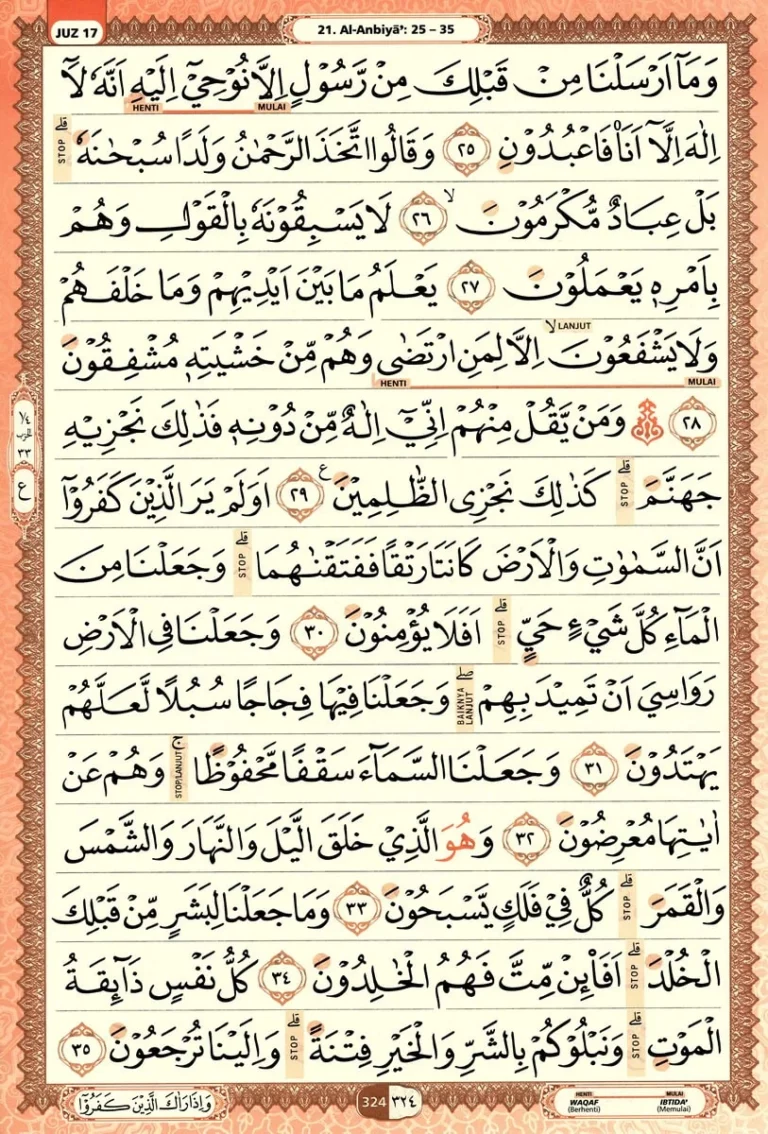 JUZ 17
21. Al-Anbiyā': 25 – 35
وَمَآ اَرْسَلْنَا مِنْ قَبْلِكَ مِنْ رَّسُوْلٍ اِلَّا نُوْحِيْٓ اِلَيْهِ اَنَّهٗ لَآ
HENTI MULAI
اِلٰهَ اِلَّآ اَنَا۠ فَاعْبُدُوْنِ ٢٥ وَقَالُوا اتَّخَذَ الرَّحْمٰنُ وَلَدًا سُبْحٰنَهٗ ۗ STOP
بَلْ عِبَادٌ مُّكْرَمُوْنَ ۙ ٢٦ لَا يَسْبِقُوْنَهٗ بِالْقَوْلِ وَهُمْ
بِاَمْرِهٖ يَعْمَلُوْنَ ٢٧ يَعْلَمُ مَا بَيْنَ اَيْدِيْهِمْ وَمَا خَلْفَهُمْ
وَلَا يَشْفَعُوْنَ ۙ LANJUT اِلَّا لِمَنِ ارْتَضٰى وَهُمْ مِّنْ خَشْيَتِهٖ مُشْفِقُوْنَ
HENTI MULAI
٢٨ ۞ وَمَنْ يَّقُلْ مِنْهُمْ اِنِّيْٓ اِلٰهٌ مِّنْ دُوْنِهٖ فَذٰلِكَ نَجْزِيْهِ
جَهَنَّمَ ۗ STOP كَذٰلِكَ نَجْزِى الظّٰلِمِيْنَ ࣖ ٢٩ اَوَلَمْ يَرَ الَّذِيْنَ كَفَرُوْٓا
اَنَّ السَّمٰوٰتِ وَالْاَرْضَ كَانَتَا رَتْقًا فَفَتَقْنٰهُمَا ۗ STOP وَجَعَلْنَا مِنَ
الْمَاۤءِ كُلَّ شَيْءٍ حَيٍّ ۗ STOP اَفَلَا يُؤْمِنُوْنَ ٣٠ وَجَعَلْنَا فِى الْاَرْضِ
رَوَاسِيَ اَنْ تَمِيْدَ بِهِمْ ۖ BAIKNYA LANJUT وَجَعَلْنَا فِيْهَا فِجَاجًا سُبُلًا لَّعَلَّهُمْ
يَهْتَدُوْنَ ٣١ وَجَعَلْنَا السَّمَاۤءَ سَقْفًا مَّحْفُوْظًا ۚ STOP/LANJUT وَهُمْ عَنْ
اٰيٰتِهَا مُعْرِضُوْنَ ٣٢ وَهُوَ الَّذِيْ خَلَقَ الَّيْلَ وَالنَّهَارَ وَالشَّمْسَ
وَالْقَمَرَ ۗ STOP كُلٌّ فِيْ فَلَكٍ يَّسْبَحُوْنَ ٣٣ وَمَا جَعَلْنَا لِبَشَرٍ مِّنْ قَبْلِكَ
الْخُلْدَ ۗ STOP اَفَا۟ىِٕنْ مِّتَّ فَهُمُ الْخٰلِدُوْنَ ٣٤ كُلُّ نَفْسٍ ذَاۤىِٕقَةُ
الْمَوْتِ ۗ STOP وَنَبْلُوْكُمْ بِالشَّرِّ وَالْخَيْرِ فِتْنَةً ۗ STOP وَاِلَيْنَا تُرْجَعُوْنَ ٣٥
¼
الحزب
٣٣
ع
وَاِذَا رَاٰكَ الَّذِيْنَ كَفَرُوْٓا
324 ٣٢٤
HENTI MULAI
WAQAF IBTIDA'
(Berhenti) (Memulai)